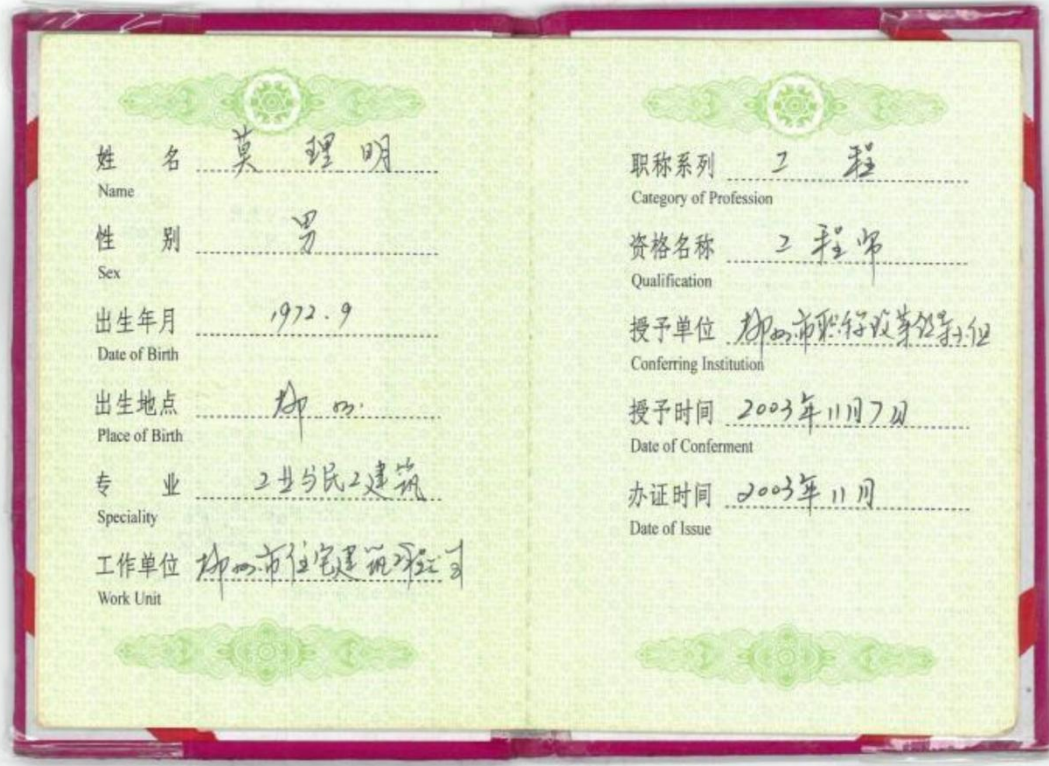 姓 名 莫理明
Name
性 别 男
Sex
出生年月 1972.9
Date of Birth
出生地点 柳州
Place of Birth
专 业 工业与民工建筑
Speciality
工作单位 柳州市住宅建筑工程公司
Work Unit
职称系列 工程
Category of Profession
资格名称 工程师
Qualification
授予单位 柳州市职称改革领导小组
Conferring Institution
授予时间 2003年11月7日
Date of Conferment
办证时间 2003年11月
Date of Issue